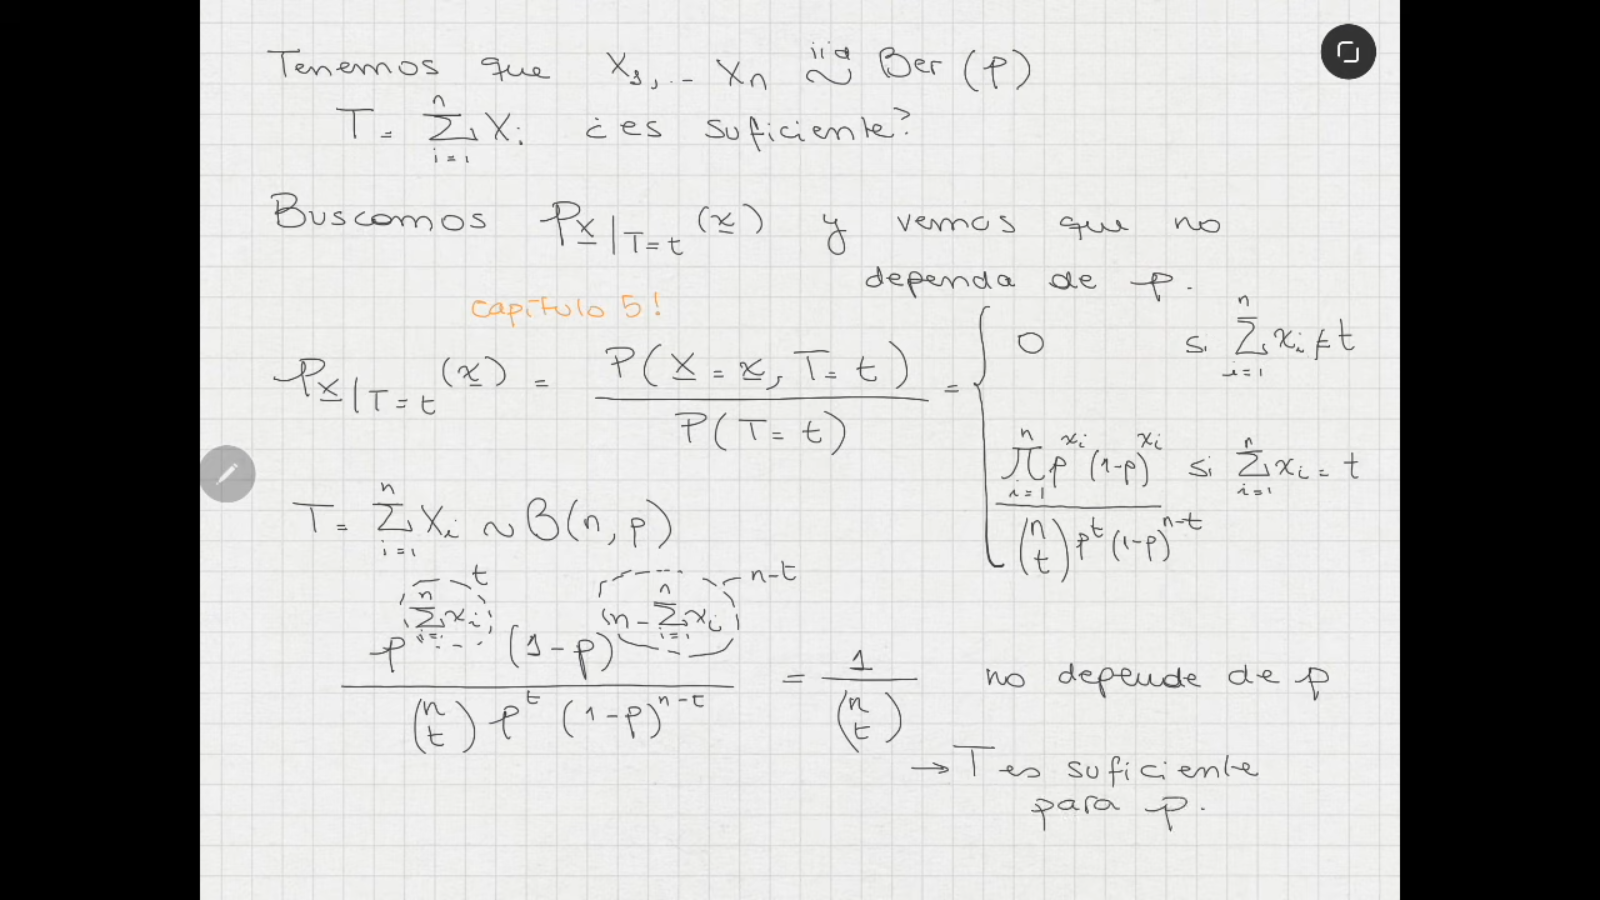 Tenemos que X₁,.. Xₙ iid ~ Ber (p)
T = ∑ᵢ₌₁ⁿ Xᵢ ¿es suficiente?
Buscamos P_X|T=t (x) y vemos que no
dependa de p.
capítulo 5!
P_X|T=t (x) = P(X = x, T = t) / P(T = t) = { 0 si ∑ᵢ₌₁ⁿ xᵢ ≠ t
∏ᵢ₌₁ⁿ p^xᵢ (1-p)^xᵢ / (n t) p^t (1-p)^n-t si ∑ᵢ₌₁ⁿ xᵢ = t
T = ∑ᵢ₌₁ⁿ Xᵢ ~ B(n, p)
t n-t
p^∑ᵢ₌₁ⁿ xᵢ (1-p)^n - ∑ᵢ₌₁ⁿ xᵢ / (n t) p^t (1-p)^n-t = 1 / (n t) no depende de p
→ T es suficiente
para p.